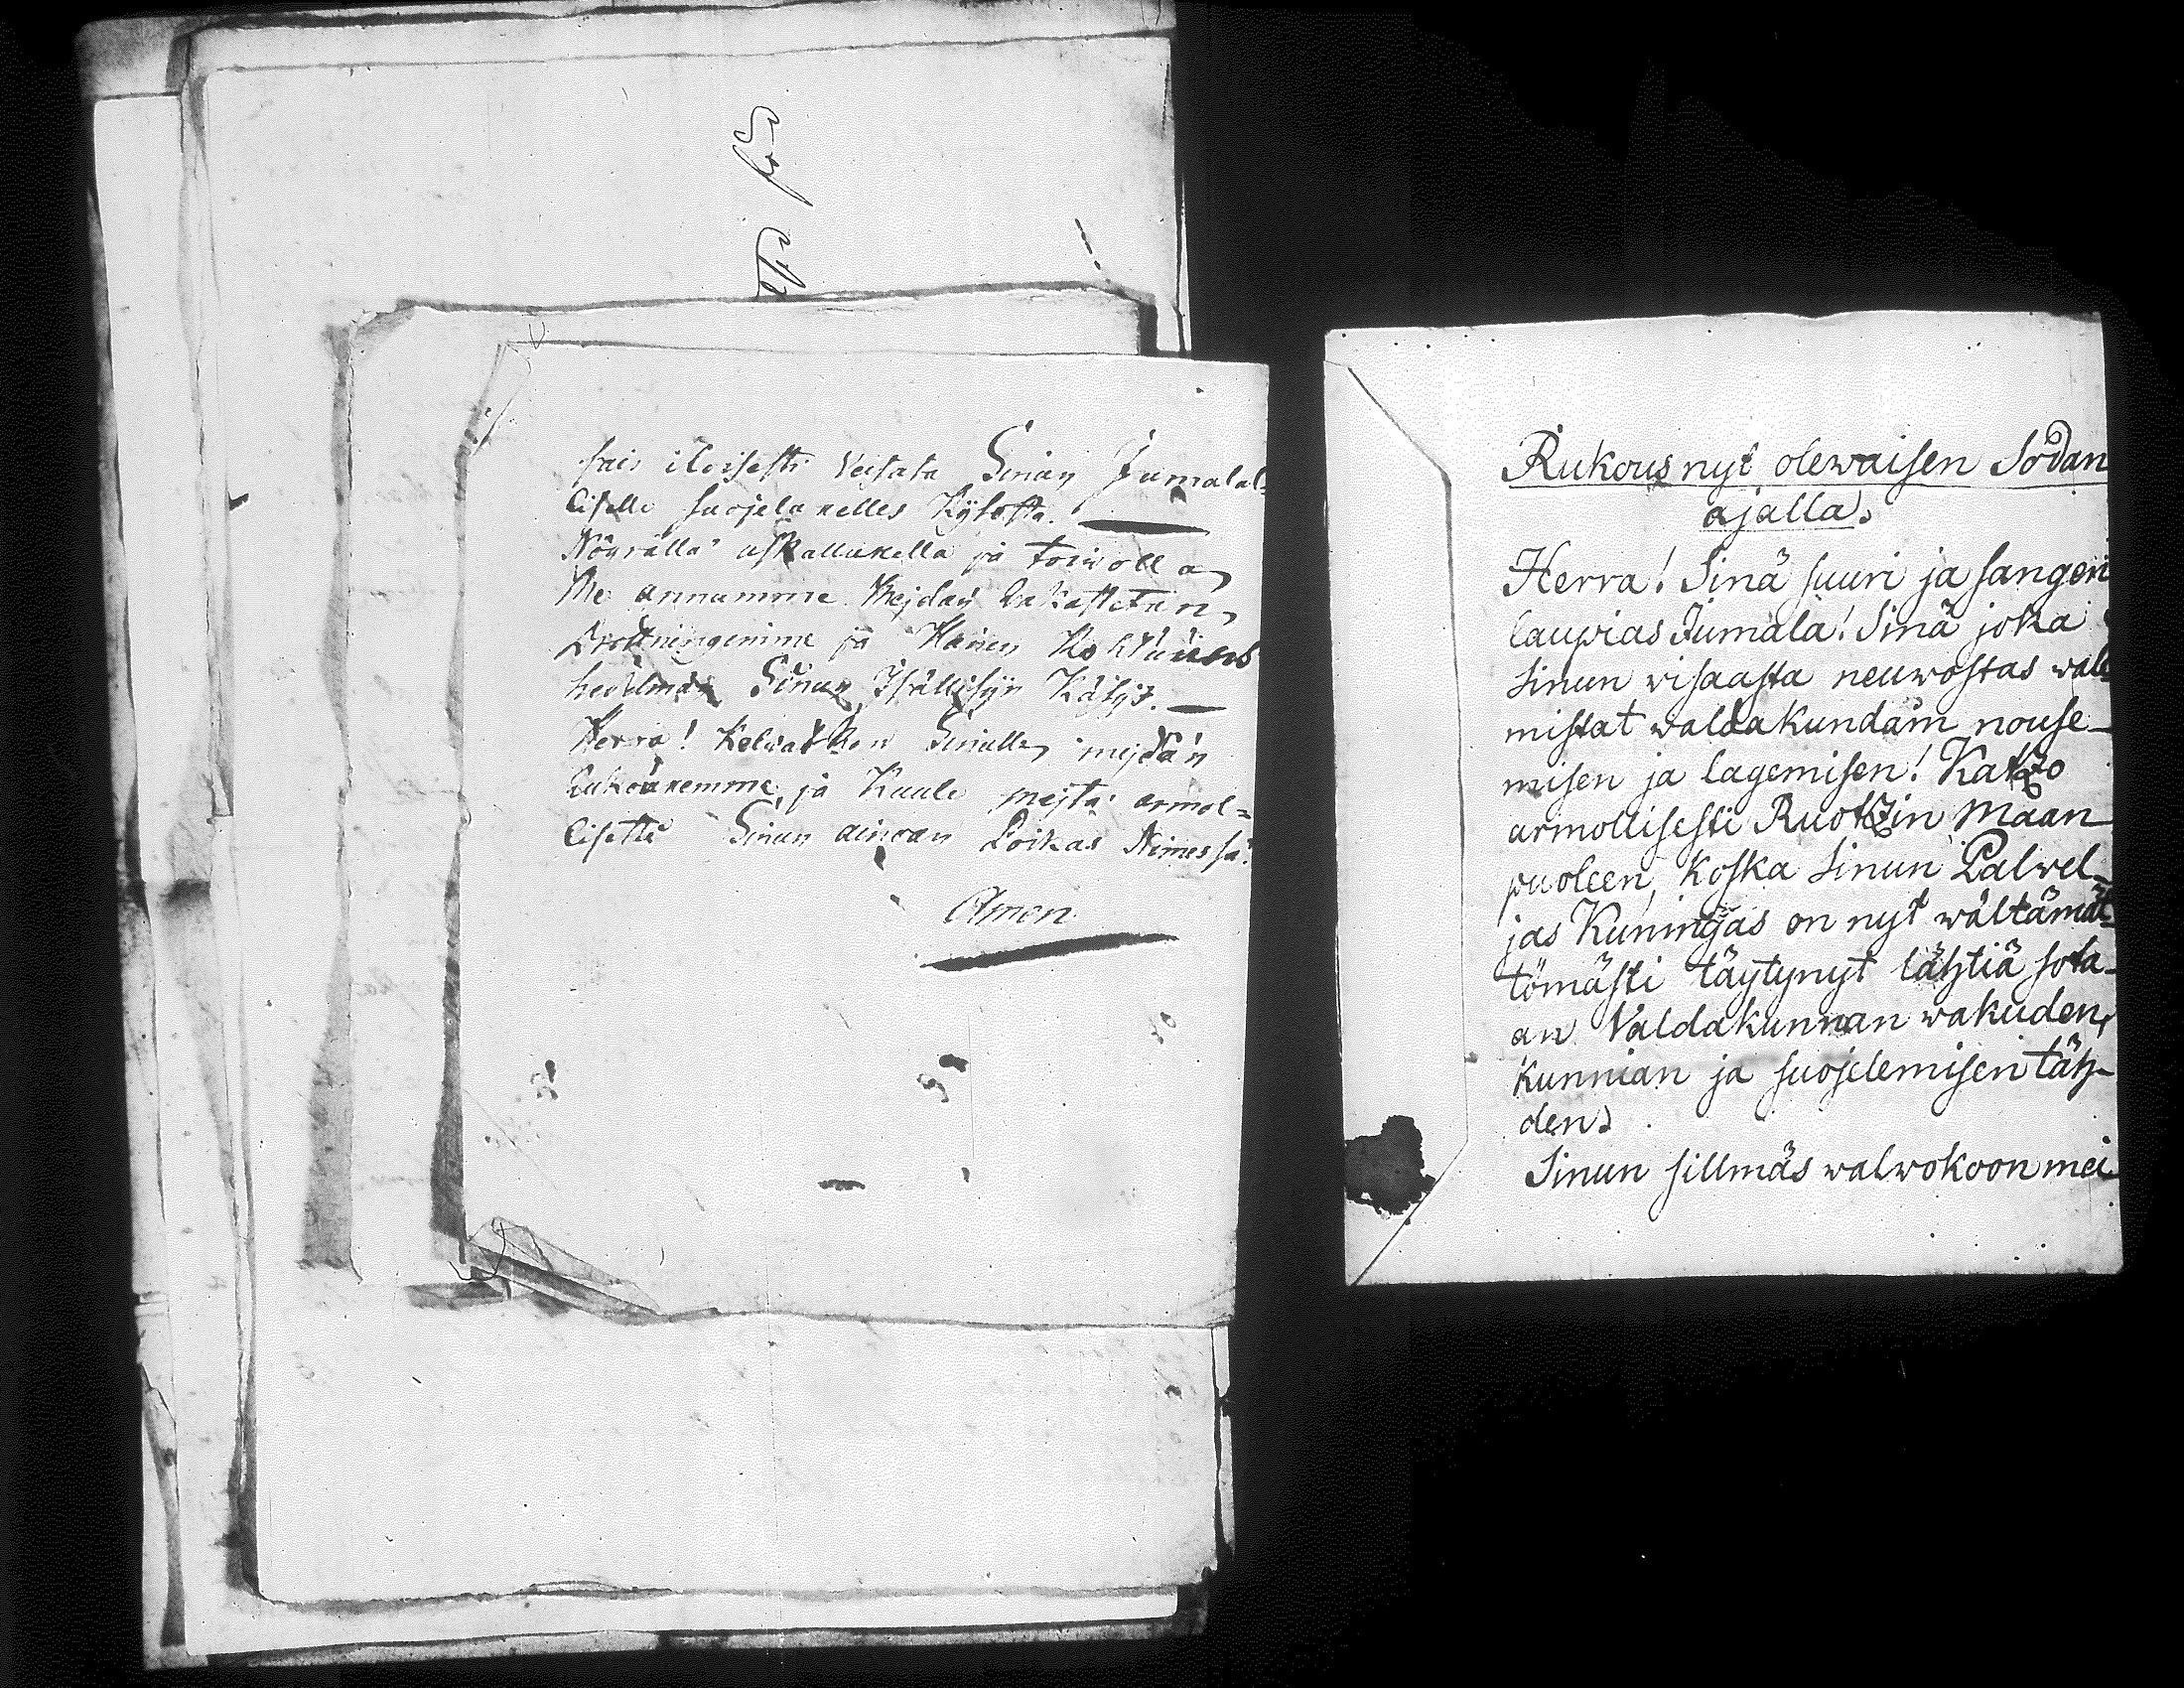 sais iloisesti Veisata Sinun Jumalal=
lisella suojeluxelles Kijtosta.
Nöyrällä uskalluxella ja toiwolla
Me annamme Meidän Rakastetun
Drottningimme ja Hänen Kohtuuns
hedelmän Sinun Isällisijn Käsijs.
Herra! Kelwatkon Sinulle meidän
Rukouxemme, ja Kuule meitä armol=
lisesti Sinun ainoan Poikas Nimessä.
Amen
Rukous nyt olewaisen Sodan
ajalla.
Herra! Sinä suuri ja sangen
laupias Jumala! Sinä joka
Sinun wisaasta neuwostas wal-
mistat waldakundain nouse-
misen ja lagemisen! Katzo
armollisesti Ruotzin Maan
puoleen, koska Sinun Palwel-
jas Kuningas on nyt wältämät-
tömästi täytynyt lähtiä sota-
an Valdakunnan wakuden,
kunnian ja suojelemisen täh-
den.
Sinun sillmäs walwokoon mei